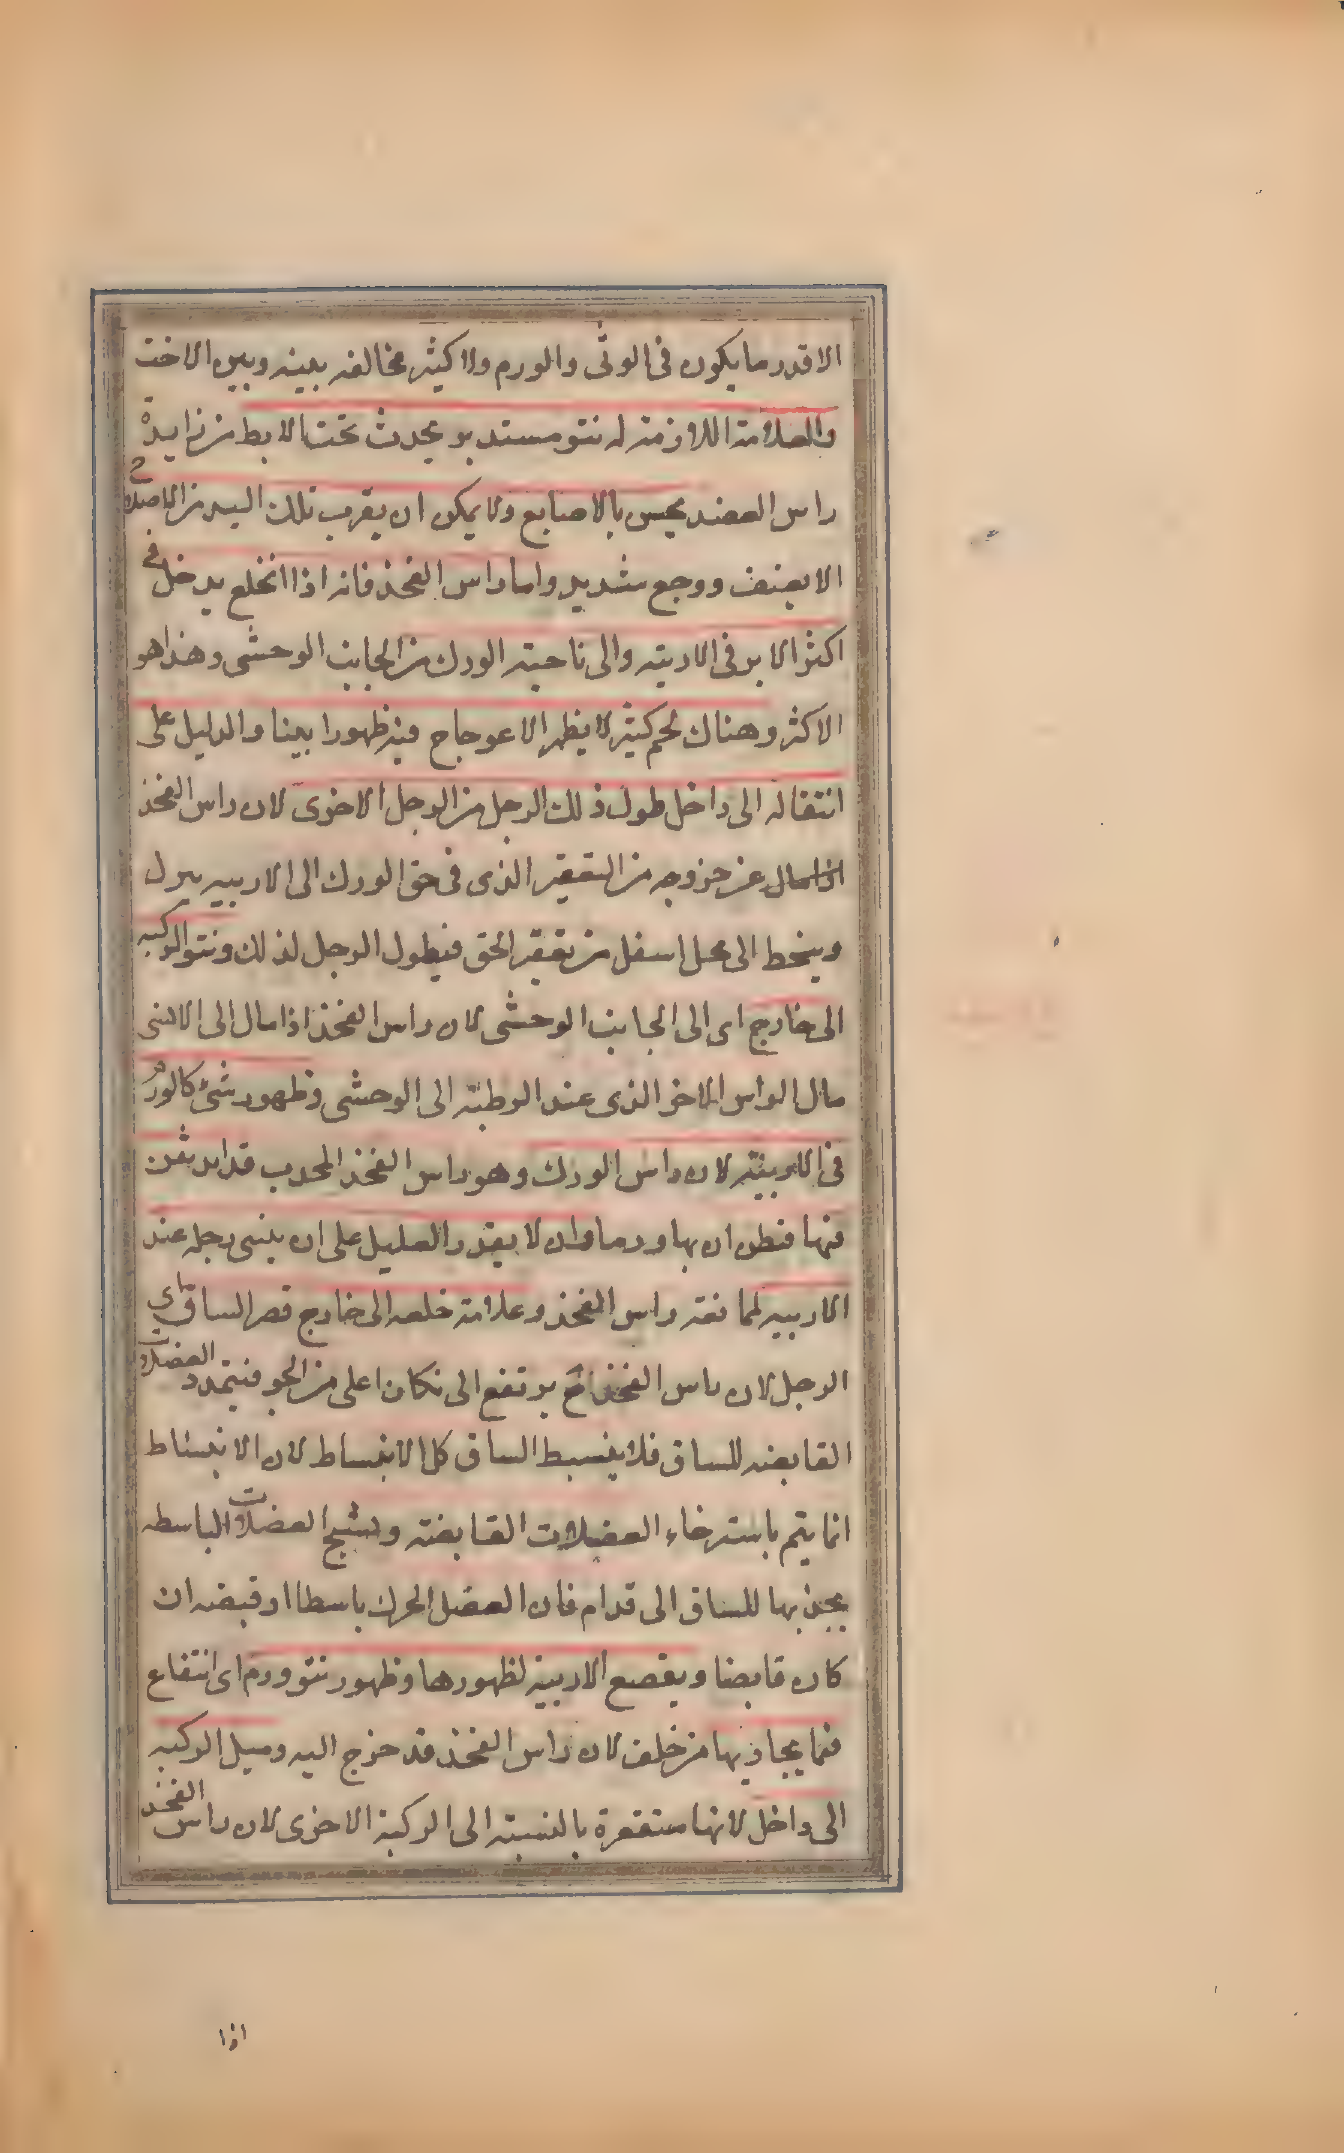 الا قدر ما يكون فى الوثى والورم ولا كثير مخالفه بينه وبين الاخت
والعلامة اللازمة له نتو مستدير يحدث تحت الابط من زايدة
راس العضد يحس بالاصابع ولا يمكن ان يقرب تلك اليد من الاضلاع
الا بعنف ووجع شديد واما راس الفخذ فانه اذا انخلع يدخل فى
اكثر الامر فى الاربيه والى ناحيته الورك من الجانب الوحشى وهذا هو
الاكثر وهناك لحم كثير لا يظهر الاعوجاج فيه ظهورا بينا والدليل على
انتقاله الى داخل طول ذلك الرجل من الرجل الاخرى لان راس الفخذ
اذا مال عن خروجه من التقعير الذى فى حق الورك الى الاربيه ينزل
وينحط الى محل اسفل من تقعير الحق فيطول الرجل لذلك ونتو الركبه
الى خارج اى الى الجانب الوحشى لان راس الفخذ اذا مال الى الانسى
مال الراس الاخر الذى عند الرطبته الى الوحشى وظهور شئ كالورم
فى الاربيته لان راس الورك وهو راس الفخذ المحدب قد اندفن
فيها فيظن ان بها ورما وان لا يقدر العليل على ان يثنى رجله عند
الاربيه لممانعة راس الفخذ وعلامته خلعه الى خارج قصر الساق اى
الرجل لان راس الفخذ ح يرتفع الى مكان اعلى من الحق فيتمدد العضلات
القابضه للساق فلا ينبسط الساق كل الانبساط لان الانبساط
انما يتم باسترخاء العضلات القابضته وتشنج العضلات الباسطه
بجذبها للساق الى قدام فان العضل المحرك باسطا او قبضه ان
كان قابضا ويقصع الاربية لظهورها وظهور نتو وورم اى انتفاع
فيما يحاذيها من خلف لان راس الفخذ قد خرج اليه وميل الركبه
الى داخل لانها متقعرة بالنسبته الى الركبة الاخرى لان راس الفخذ
اذا